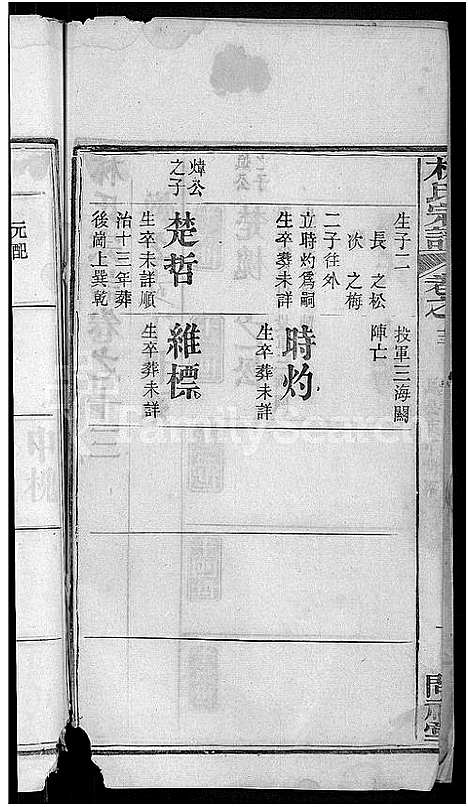 林氏宗譜 卷之十三
生子二
長 之松
次 之梅
二子往外
立時灼爲嗣
生卒葬未詳
投軍三海關
陣亡
時灼
生卒葬未詳
煒公
之子
楚哲
生卒未詳順
治十三年葬
後崗上巽乾
維標
生卒葬未詳
元配
FamilySearch